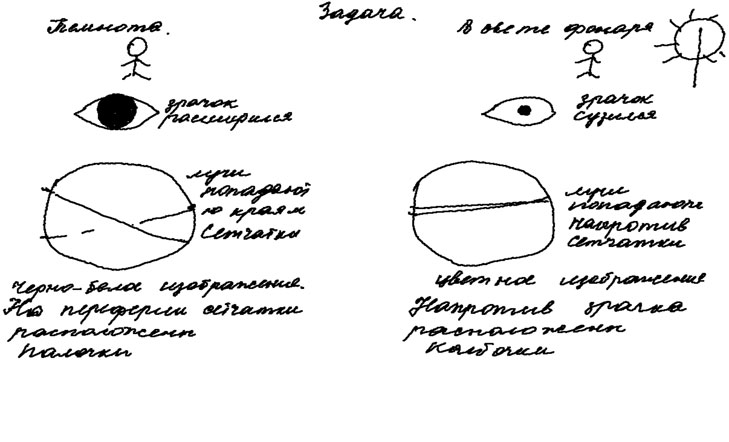 Задача.
Темнота.
зрачок
расширился
лучи
попадают
по краям
сетчатки
черно-белое изображение.
На периферии сетчатки
расположены
палочки
В свете фонаря
зрачок
сузился
лучи
попадают
напротив
сетчатки
цветное изображение
Напротив зрачка
расположены
колбочки